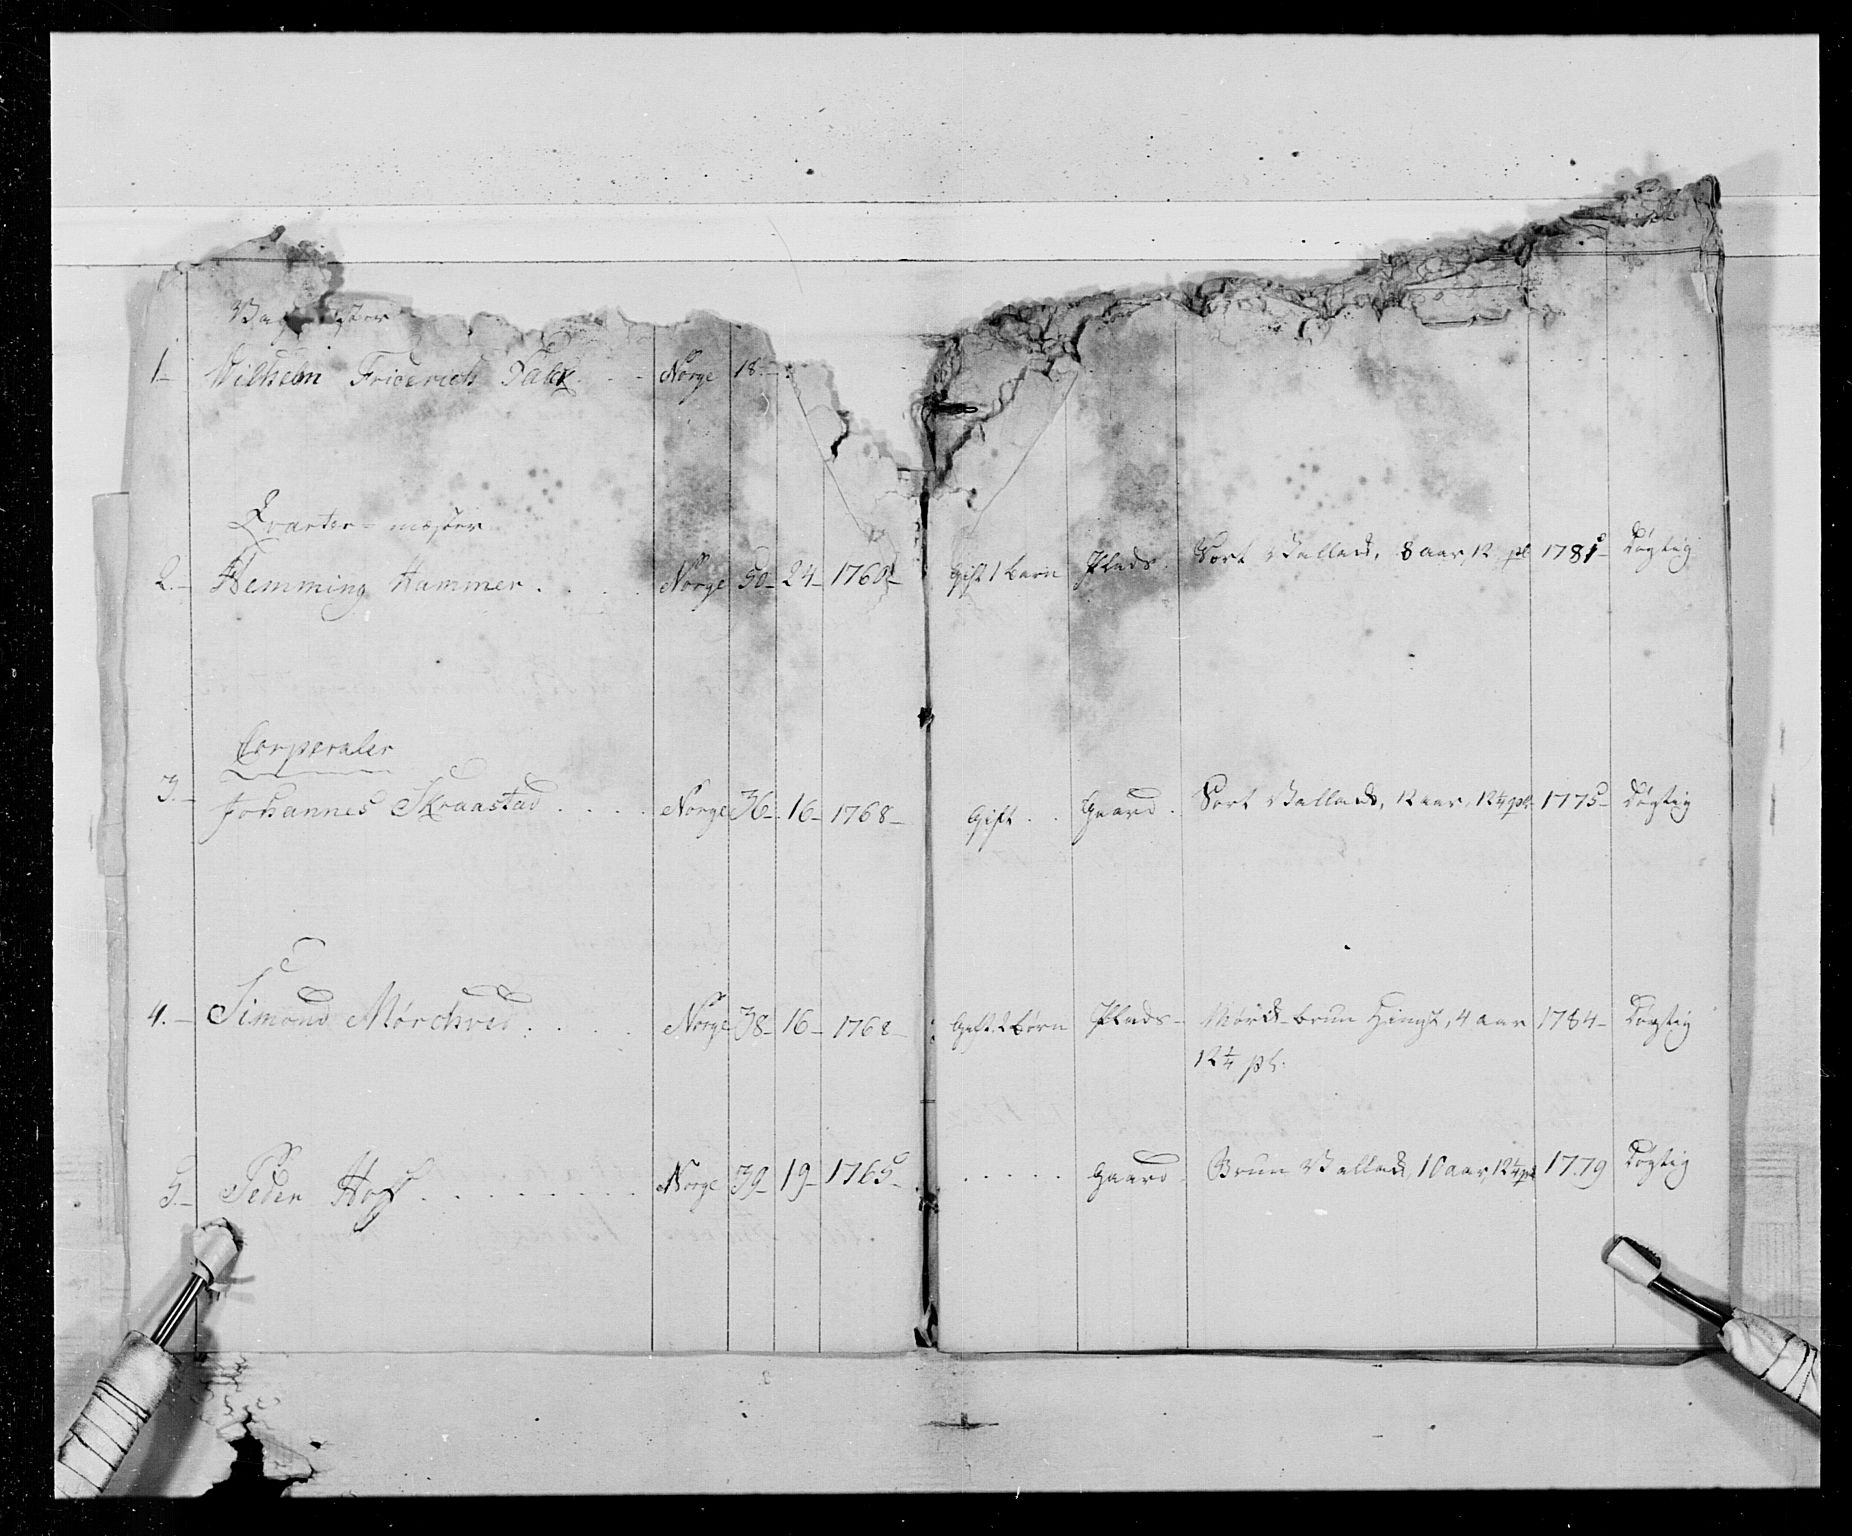 1- Wilhelm Friderich Falck . . - Norge 18.-
Qvarter-mester
2.- Hemming Hammer . . . . Norge 50- 24- 1760- Gift 1 barn Plads. Sort Vallach, 8 aar, 12 ql 1781- Døgtig
Corperaler
3.- Johannes Skraastad . . . . Norge 36- 16- 1768- Gift . . Gaard . Sort Vallach, 12 aar, 12¼ ql. 1775- Døgtig
4.- Simond Mørchved . . . . Norge 38- 16- 1768- Gift 2 børn Plads- Mørch-brun Hingst, 4 aar 1784- Døgtig
12¼ ql.
5- Peder Hoff . . . . . . . . . Norge 39- 19- 1765- . . . . . Gaard . Brun Vallach, 10 aar, 12¼ ql 1779 Døgtig